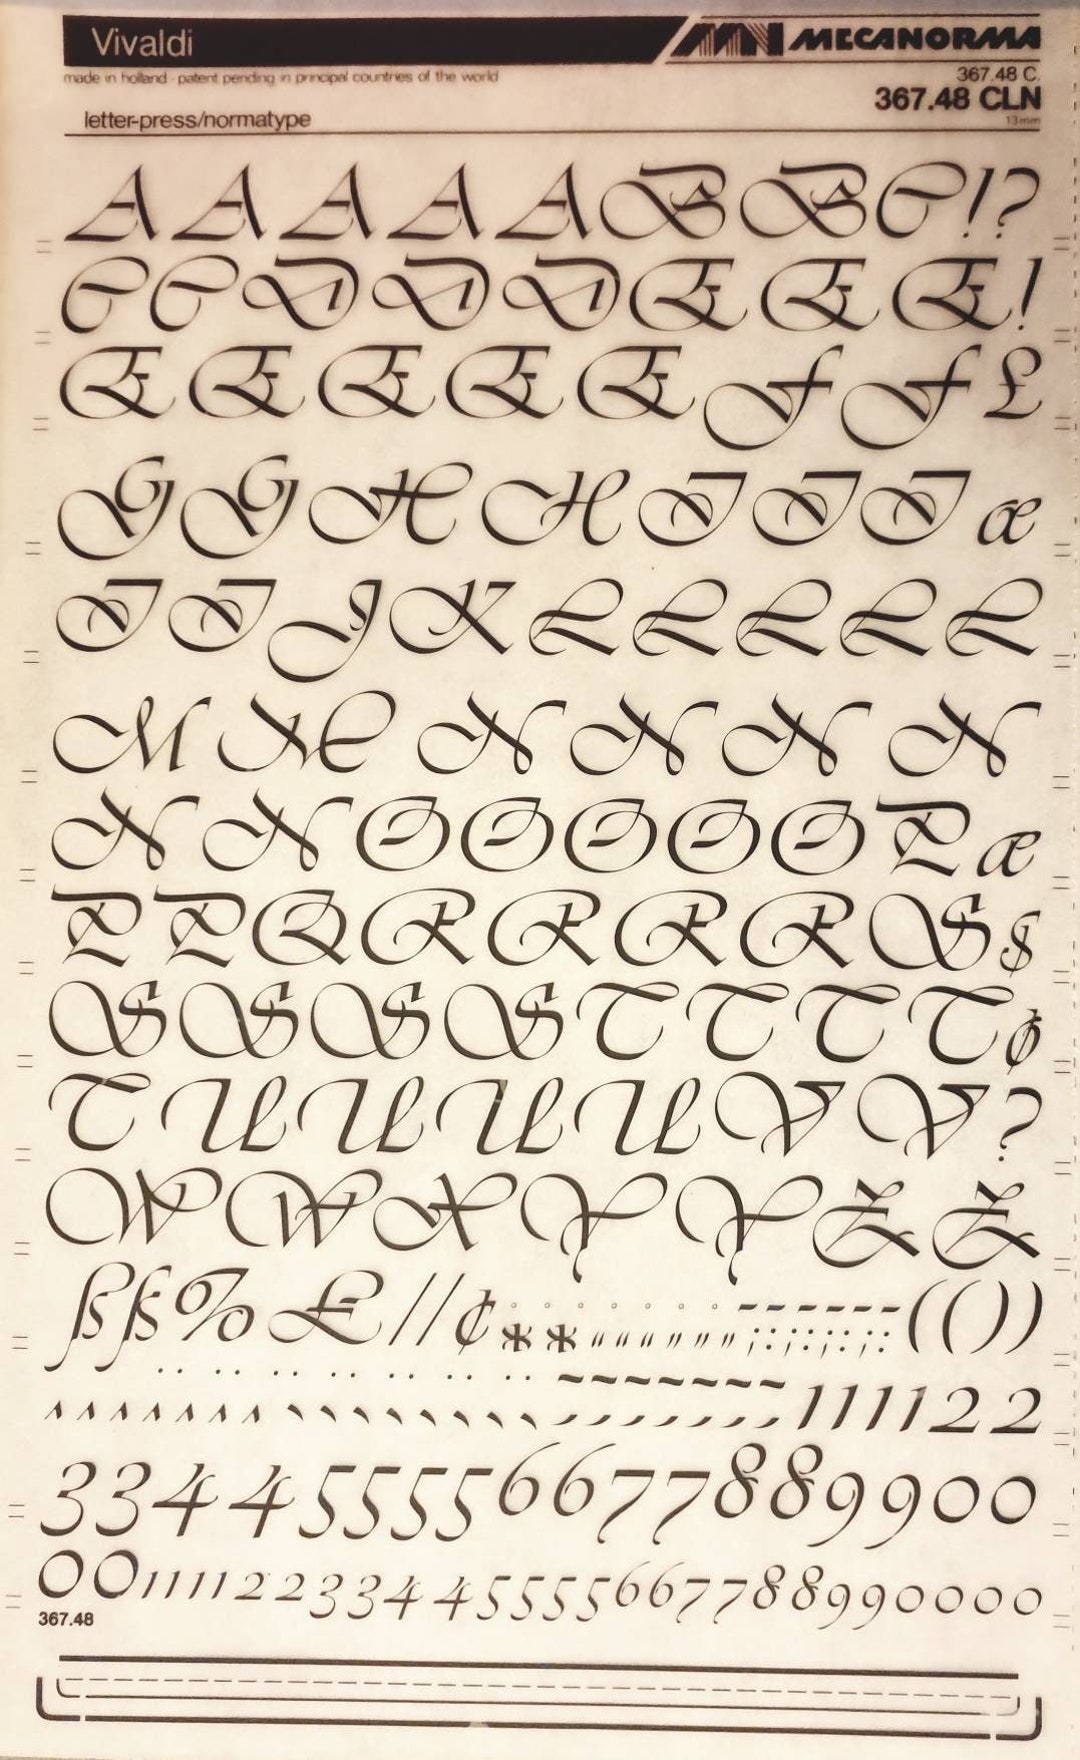 Vivaldi
MECANORMA
made in holland · patent pending in principal countries of the world
367.48 C.
367.48 CLN
13mm
letter-press/normatype
A A A A A B B C ! ?
C C D D D E E E !
E E E E E F F £
G G H H I I I æ
I I J K L L L L L
M M N N N N
N N O O O O O P æ
P P Q R R R R S $
S S S S T T T T ¢
T U U U U V V ?
W W X Y Y Z Z
ß ß % £ / / ¢ * * ( ( ) )
1 1 1 1 2 2
3 3 4 4 5 5 5 5 6 6 7 7 8 8 9 9 0 0
0 0 1 1 1 1 2 2 3 3 4 4 5 5 5 5 6 6 7 7 8 8 9 9 0 0 0 0
367.48